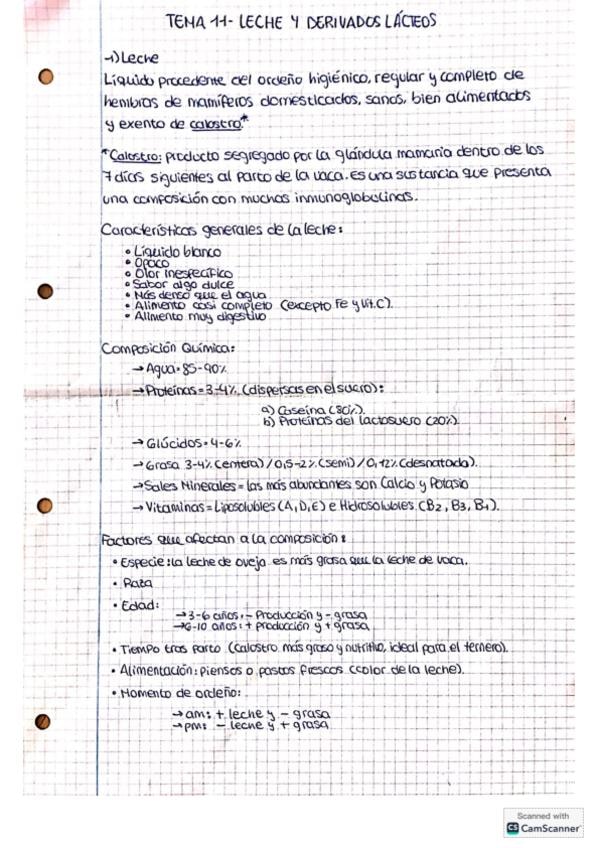 TEMA 11- LECHE Y DERIVADOS LÁCTEOS
-1) Leche
Líquido procedente del ordeño higiénico, regular y completo de
hembras de mamíferos domesticados, sanos, bien alimentados
y exento de calostro.*
*Calostro: producto segregado por la glándula mamaria dentro de los
7 días siguientes al parto de la vaca. Es una sustancia que presenta
una composición con muchas inmunoglobulinas.
Características generales de la leche:
• Líquido blanco
• Opaco
• Olor inespecífico
• Sabor algo dulce
• Más denso que el agua
• Alimento casi completo (excepto Fe y Vit.C).
• Alimento muy digestivo
Composición Química:
→ Agua = 85-90%
→ Proteínas = 3-4% (dispersas en el suero):
a) Caseína (80%).
b) Proteínas del lactosuero (20%).
→ Glúcidos = 4-6%
→ Grasa 3-4% (entera) / 0,5-2% (semi) / 0,12% (desnatada).
→ Sales Minerales = las más abundantes son Calcio y Potasio
→ Vitaminas = Liposolubles (A, D, E) e Hidrosolubles (B2, B3, B1).
Factores que afectan a la composición:
• Especie: la leche de oveja es más grasa que la leche de vaca.
• Raza
• Edad:
→ 3-6 años: - Producción y - grasa
→ 6-10 años: + producción y + grasa
• Tiempo tras parto (Calostro más graso y nutritivo, ideal para el ternero).
• Alimentación: piensos o pastos frescos (color de la leche).
• Momento de ordeño:
→ am: + leche y - grasa
→ pm: - leche y + grasa
Scanned with
CS CamScanner